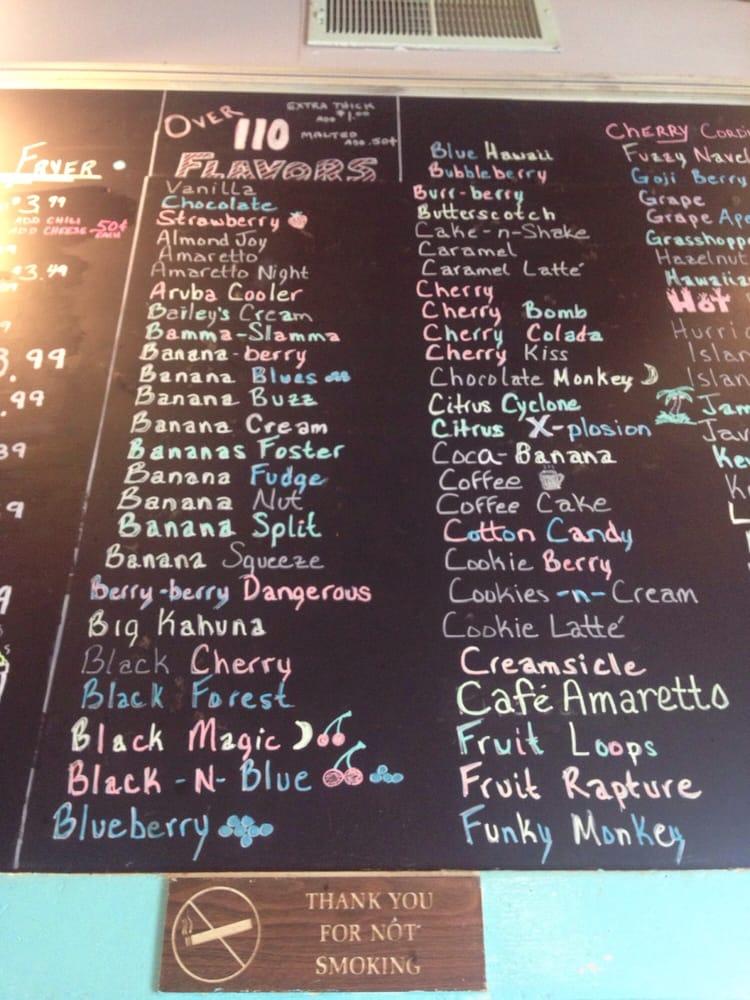 FRYER
$3.99
ADD CHILI
ADD CHEESE 50¢
EACH
$3.49
.99
.99
OVER
110
FLAVORS
EXTRA THICK
ADD $1.00
MALTED
ADD .50¢
Vanilla
Chocolate
Strawberry
Almond Joy
Amaretto
Amaretto Night
Aruba Cooler
Bailey's Cream
Bamma-Slamma
Banana-berry
Banana Blues
Banana Buzz
Banana Cream
Bananas Foster
Banana Fudge
Banana Nut
Banana Split
Banana Squeeze
Berry-berry Dangerous
Big Kahuna
Black Cherry
Black Forest
Black Magic
Black-N-Blue
Blueberry
Blue Hawaii
Bubbleberry
Burr-berry
Butterscotch
Cake-n-Shake
Caramel
Caramel Latté
Cherry
Cherry Bomb
Cherry Colada
Cherry Kiss
Chocolate Monkey
Citrus Cyclone
Citrus X-plosion
Coca-Banana
Coffee
Coffee Cake
Cotton Candy
Cookie Berry
Cookies-n-Cream
Cookie Latté
Creamsicle
Café Amaretto
Fruit Loops
Fruit Rapture
Funky Monkey
CHERRY CORDI
Fuzzy Navel
Goji Berry
Grape
Grape Ap
Grasshopp
Hazelnut
Hawaiia
Hot
Hurri
Islan
Islan
Jam
Jav
Ke
THANK YOU
FOR NOT
SMOKING